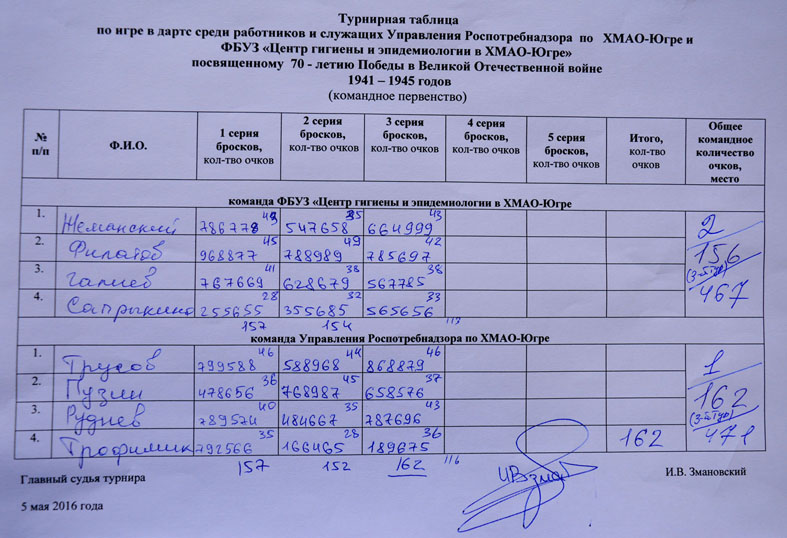 Турнирная таблица
по игре в дартс среди работников и служащих Управления Роспотребнадзора по ХМАО-Югре и
ФБУЗ «Центр гигиены и эпидемиологии в ХМАО-Югре»
посвященному 70 - летию Победы в Великой Отечественной войне
1941 – 1945 годов
(командное первенство)
№ п/п Ф.И.О. 1 серия бросков, кол-тво очков 2 серия бросков, кол-тво очков 3 серия бросков, кол-тво очков 4 серия бросков, кол-тво очков 5 серия бросков, кол-тво очков Итого, кол-тво очков Общее командное количество очков, место
команда ФБУЗ «Центр гигиены и эпидемиологии в ХМАО-Югре
1. Жеманский 786778 43 547658 35 664999 43 2
2. Филатов 968877 45 788989 49 785697 42 156
3. Галиев 767669 41 628679 38 567785 38 (3-й тур) 467
4. Сапрыкина 255655 28 355685 32 565656 33
157 154 117
команда Управления Роспотребнадзора по ХМАО-Югре
1. Трусов 799588 46 588968 44 868879 46 1
2. Пузин 478656 36 768987 45 658576 37 162
3. Руднев 789574 40 484667 35 787696 43 (3-й тур)
4. Трофимик 792566 35 166465 28 189675 36 162 471
157 152 162 116
Главный судья турнира И.В. Змановский
5 мая 2016 года